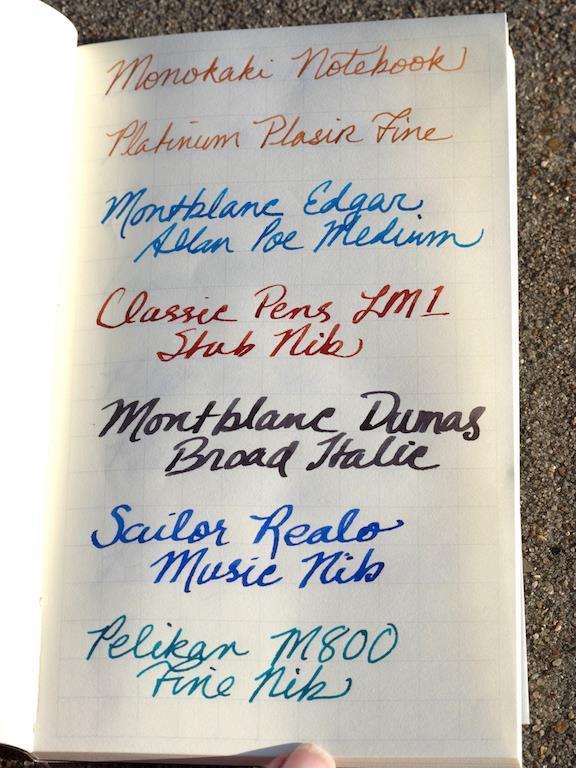 Monokaki Notebook
Platinum Plasir Fine
Montblanc Edgar
Allan Poe Medium
Classic Pens LM1
Stub Nib
Montblanc Dumas
Broad Italic
Sailor Realo
Music Nib
Pelikan M800
Fine Nib